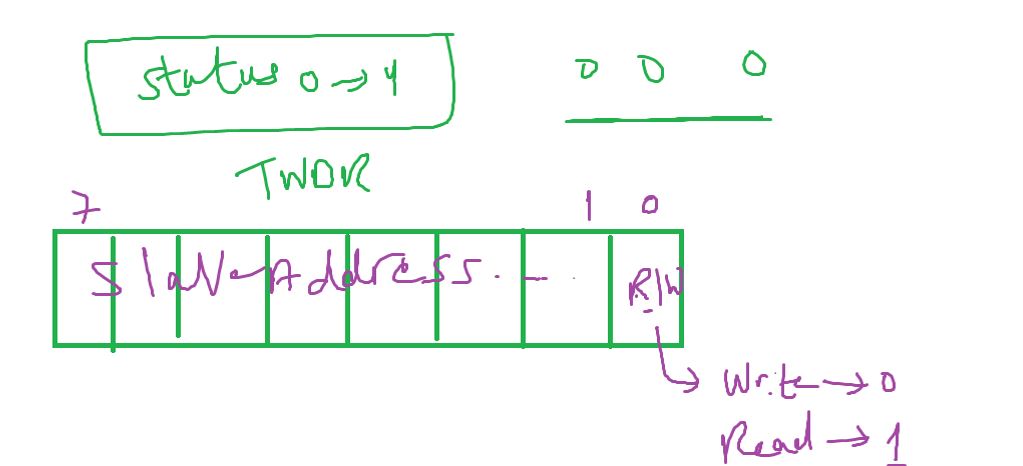 status 0 → 4
0 0 0
TWDR
7 1 0
Slave Address . - . R/W
Write → 0
Read → 1